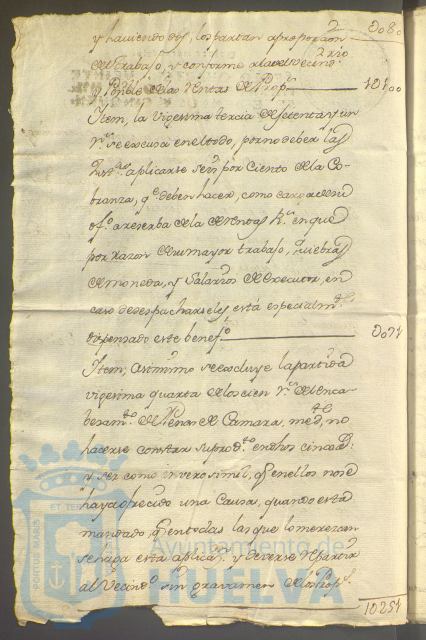 y haviendo dos, los partan a proporcion 0080
de trabajo, y conforme
y Posible de las Rentas de Prop.s 10100
Item, la Vigesima tercia de setenta y un
r.s se escusa en el todo, por no deber las
aplicarse seis por Ciento de la Co-
branza, q.e deben hacer, como cargo de su
of.o a reserba de la de Rentas R.s en que
por razon de su mayor trabajo, quiebras
de moneda, y Salarios de executor, en
caso de despacharseles está especialm.te
dispensado este benef.o 0071
Item, asimismo se excluye la partida
vigesima quarta de los cien r.s de l enca-
besam.to de Penas de Camara, med.te no
hacerse constar su prod.to en dhos cinco a.s
y ser como inverosimil, q.e en ellos no se
haya ofrecido una Causa, quando está
mandado, q.e en todas las que lo merezcan
se haga esta aplicac.n y deverse repartir
al Vecind.o sin gravamen de los Prop.s
10251
PORTUS MARIS
ET TERRAE
Ayuntamiento de
HUELVA